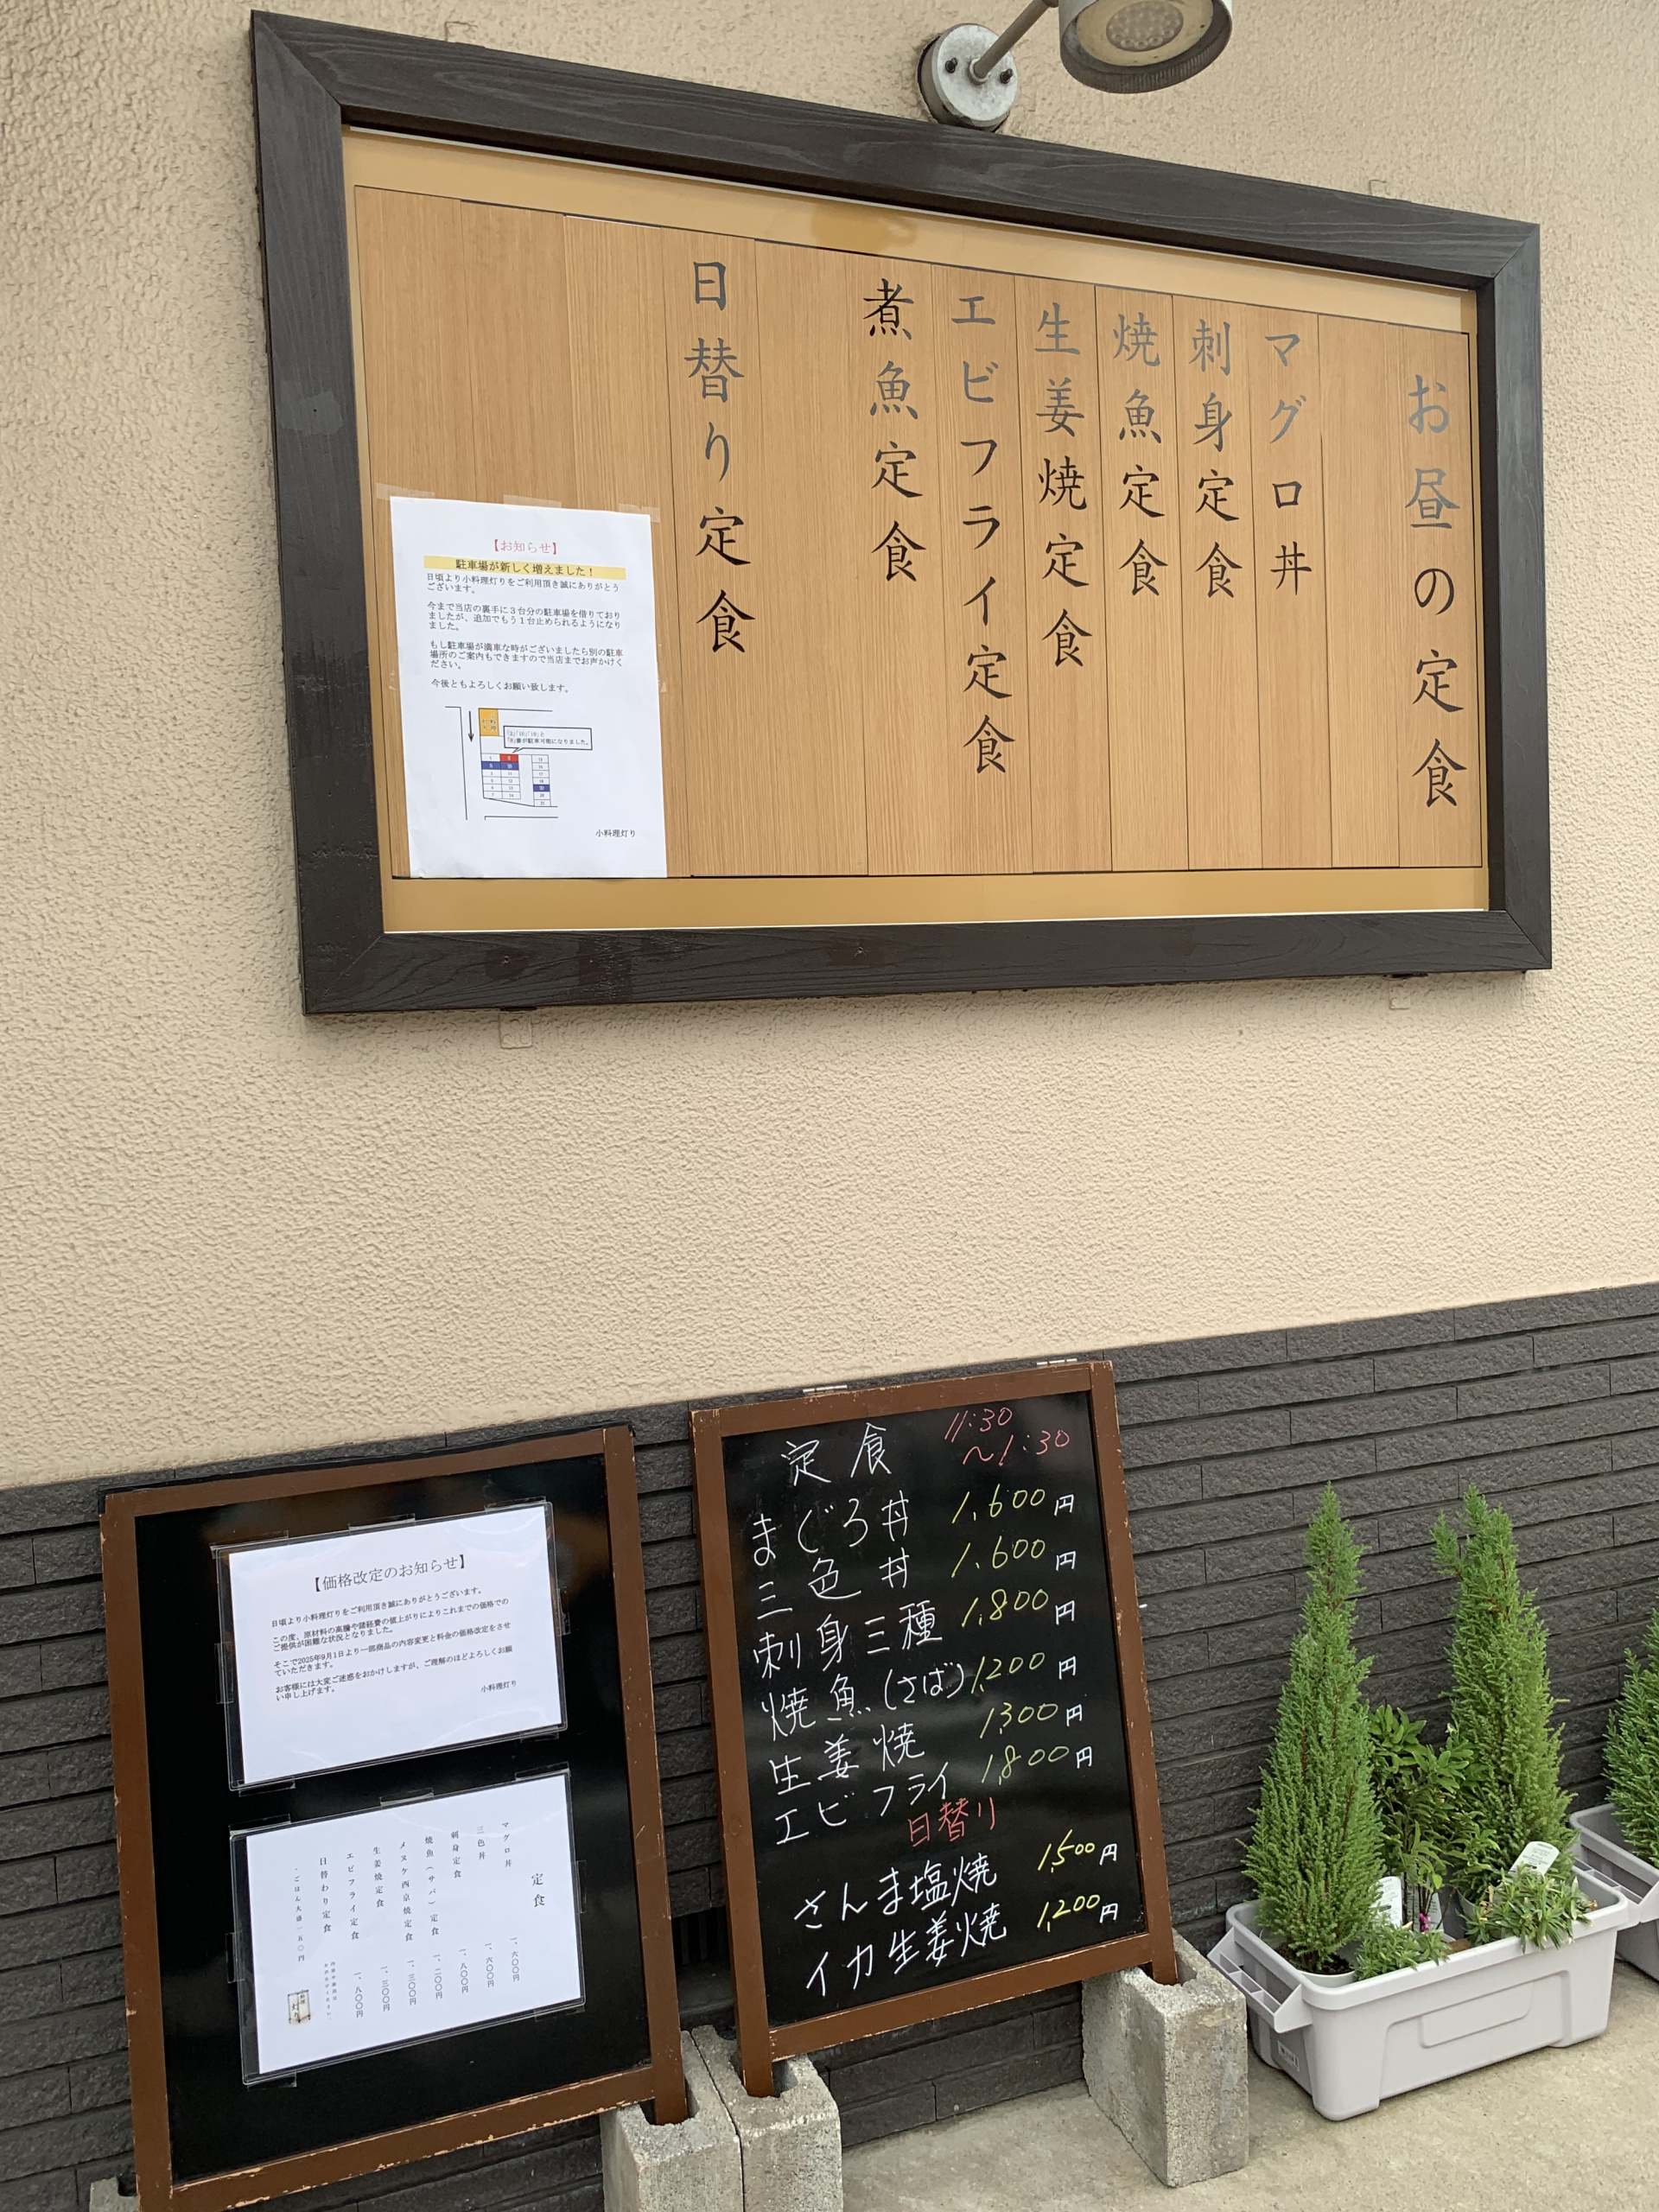 お昼の定食
マグロ丼
刺身定食
焼魚定食
生姜焼定食
エビフライ定食
煮魚定食
日替り定食
【お知らせ】
駐車場が新しく増えました！
日頃より小料理灯りをご利用頂き誠にありがとう
ございます。
今まで当店の裏手に３台分の駐車場を借りており
ましたが、追加でもう１台止められるようになり
ました。
もし駐車場が満車な時がございましたら別の駐車
場所のご案内もできますので当店までお声かけく
ださい。
今後ともよろしくお願い致します。
小料理灯り
【価格改定のお知らせ】
日頃より小料理灯りをご利用頂き誠にありがとうございます。
この度、原材料の高騰や諸経費の値上がりによりこれまでの価格での
ご提供が困難な状況となりました。
そこで2025年9月1日より一部商品の内容変更と料金の価格改定をさせ
ていただきます。
お客様には大変ご迷惑をおかけしますが、ご理解のほどよろしくお願
い申し上げます。
小料理灯り
定食
マグロ丼 一、六〇〇円
三色丼 一、六〇〇円
刺身定食 一、八〇〇円
焼魚（サバ）定食 一、二〇〇円
メヌケ西京焼定食 一、三〇〇円
生姜焼定食 一、三〇〇円
エビフライ定食 一、八〇〇円
日替わり定食
・ごはん大盛一五〇円
定食 11:30
～1:30
まぐろ丼 1,600円
三色丼 1,600円
刺身三種 1,800円
焼魚(さば) 1,200円
生姜焼 1,300円
エビフライ 1,800円
日替り
さんま塩焼 1,500円
イカ生姜焼 1,200円